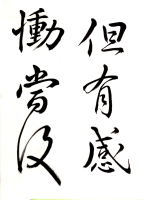 但有感
慟當